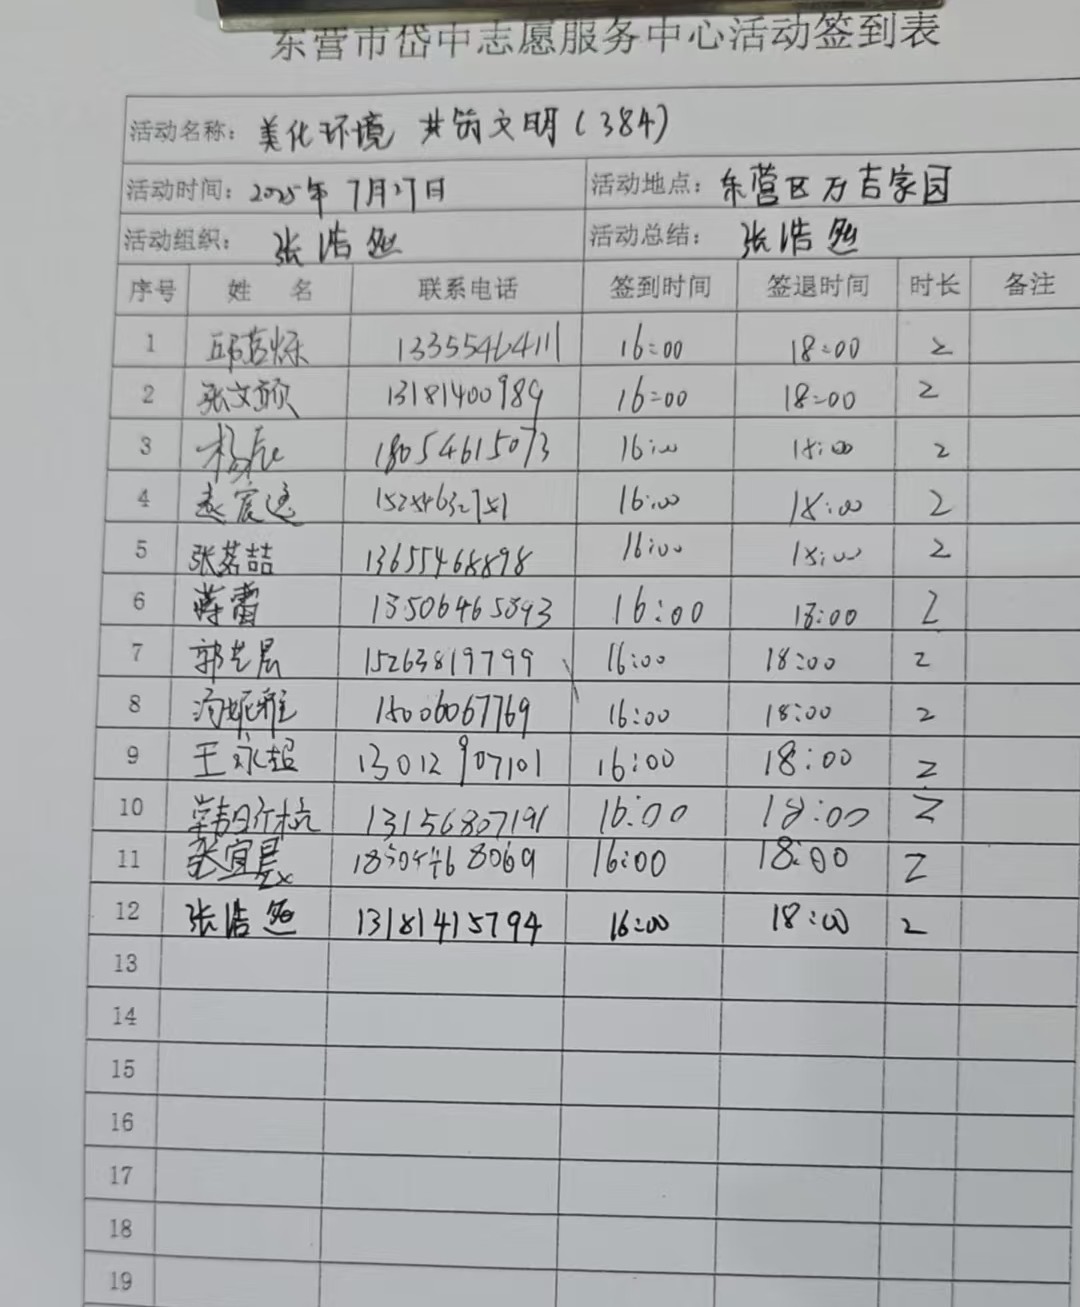 东营市岱中志愿服务中心活动签到表
活动名称：美化环境 共筑文明（384）
活动时间：2025年7月27日 活动地点：东营区万吉家园
活动组织：张浩 活动总结：张浩
序号 姓 名 联系电话 签到时间 签退时间 时长 备注
1 13355464111 16:00 18:00 2
2 张文颀 13181400989 16:00 18:00 2
3 杨 18054615073 16:00 18:00 2
4 16:00 18:00 2
5 张茗喆 13655468898 16:00 18:00 2
6 蒋蕾 13506465393 16:00 18:00 2
7 郭 15263819799 16:00 18:00 2
8 18006067769 16:00 18:00 2
9 王永超 13012907101 16:00 18:00 2
10 13156807191 16:00 18:00 2
11 张宜 16:00 18:00 2
12 张浩 13181415794 16:00 18:00 2
13
14
15
16
17
18
19